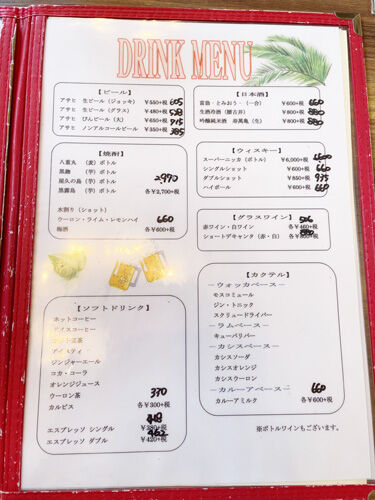 DRINK MENU
【ビール】
アサヒ 生ビール（ジョッキ） ¥550+税 605
アサヒ 生ビール（グラス） ¥480+税 528
アサヒ びんビール（大） ¥650+税 715
アサヒ ノンアルコールビール ¥350+税 385
【焼酎】
八重丸 （麦）ボトル
黒麹 （芋）ボトル
屋久の島 （芋）ボトル 2,970
黒霧島 （芋）ボトル 各¥2,700+税
水割り（ショット）
ウーロン・ライム・レモンハイ 660
梅酒 各¥600+税
【ソフトドリンク】
ホットコーヒー
アイスコーヒー
ホット紅茶
アイスティ
ジンジャーエール
コカ・コーラ
オレンジジュース
ウーロン茶 330
カルピス 各¥300+税
エスプレッソ シングル ¥380+税
エスプレッソ ダブル ¥420+税
【日本酒】
¥600+税 660
生酒冷酒 ¥800+税 880
吟醸純米酒 ¥800+税 880
【ウィスキー】
スーパーニッカ（ボトル） ¥6,000+税
シングルショット ¥600+税 660
ダブルショット ¥850+税 935
ハイボール ¥600+税 660
【グラスワイン】
赤ワイン・白ワイン 各¥460+税 506
ショートデキャンタ（赤・白）
【カクテル】
―ウォッカベース―
モスコミュール
ジン・トニック
スクリュードライバー
―ラムベース―
キューバリバー
―カシスベース―
カシスソーダ
カシスオレンジ
カシスウーロン
―カルーアベース― 660
カルーアミルク 各¥600+税
※ボトルワインもございます。